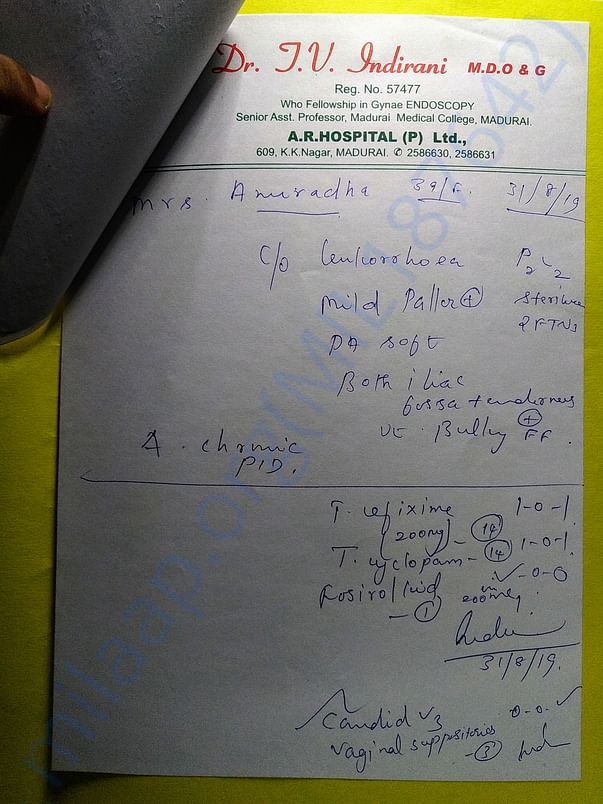 Dr. T.V. Indirani M.D.O & G
Reg. No. 57477
Who Fellowship in Gynae ENDOSCOPY
Senior Asst. Professor, Madurai Medical College, MADURAI.
A.R.HOSPITAL (P) Ltd.,
609, K.K.Nagar, MADURAI. ✆ 2586630, 2586631
Mrs. Anuradha 39/F. 31/8/19
C/o leukorrhoea P2L2
Mild Pallor +
2 FTNs
PA soft
Both iliac
fossa tenderness +
ut. Bulky FF.
Δ. chronic
PID.
T. cefixime 1-0-1
(200mg) - 14
T. cyclopam - 14 1-0-1
200ml
- 1
31/8/19.
Candid V3 0-0-✓
vaginal suppositories
- 3
milaap.org